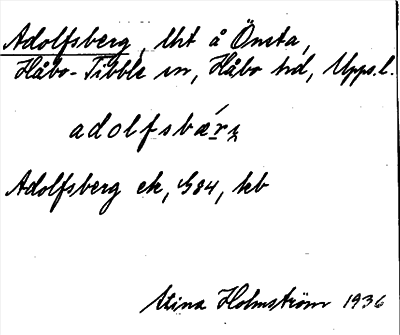 Adolfsberg, lht å Önsta,
Håbo-Tibble sn, Håbo hd, Upps. l.
adolfsbærʒ
Adolfsberg ek, G84, hb
Stina Holmström 1936